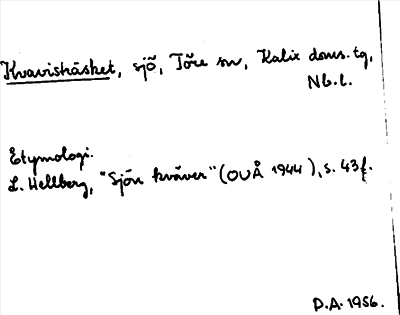 Kvavisträsket, sjö, Töre sn, Kalix doms. tg,
Nb. l.
Etymologi.
L. Hellberg, "Sjön kväver" (OUÅ 1944), s. 43 f.
D.A. 1956.